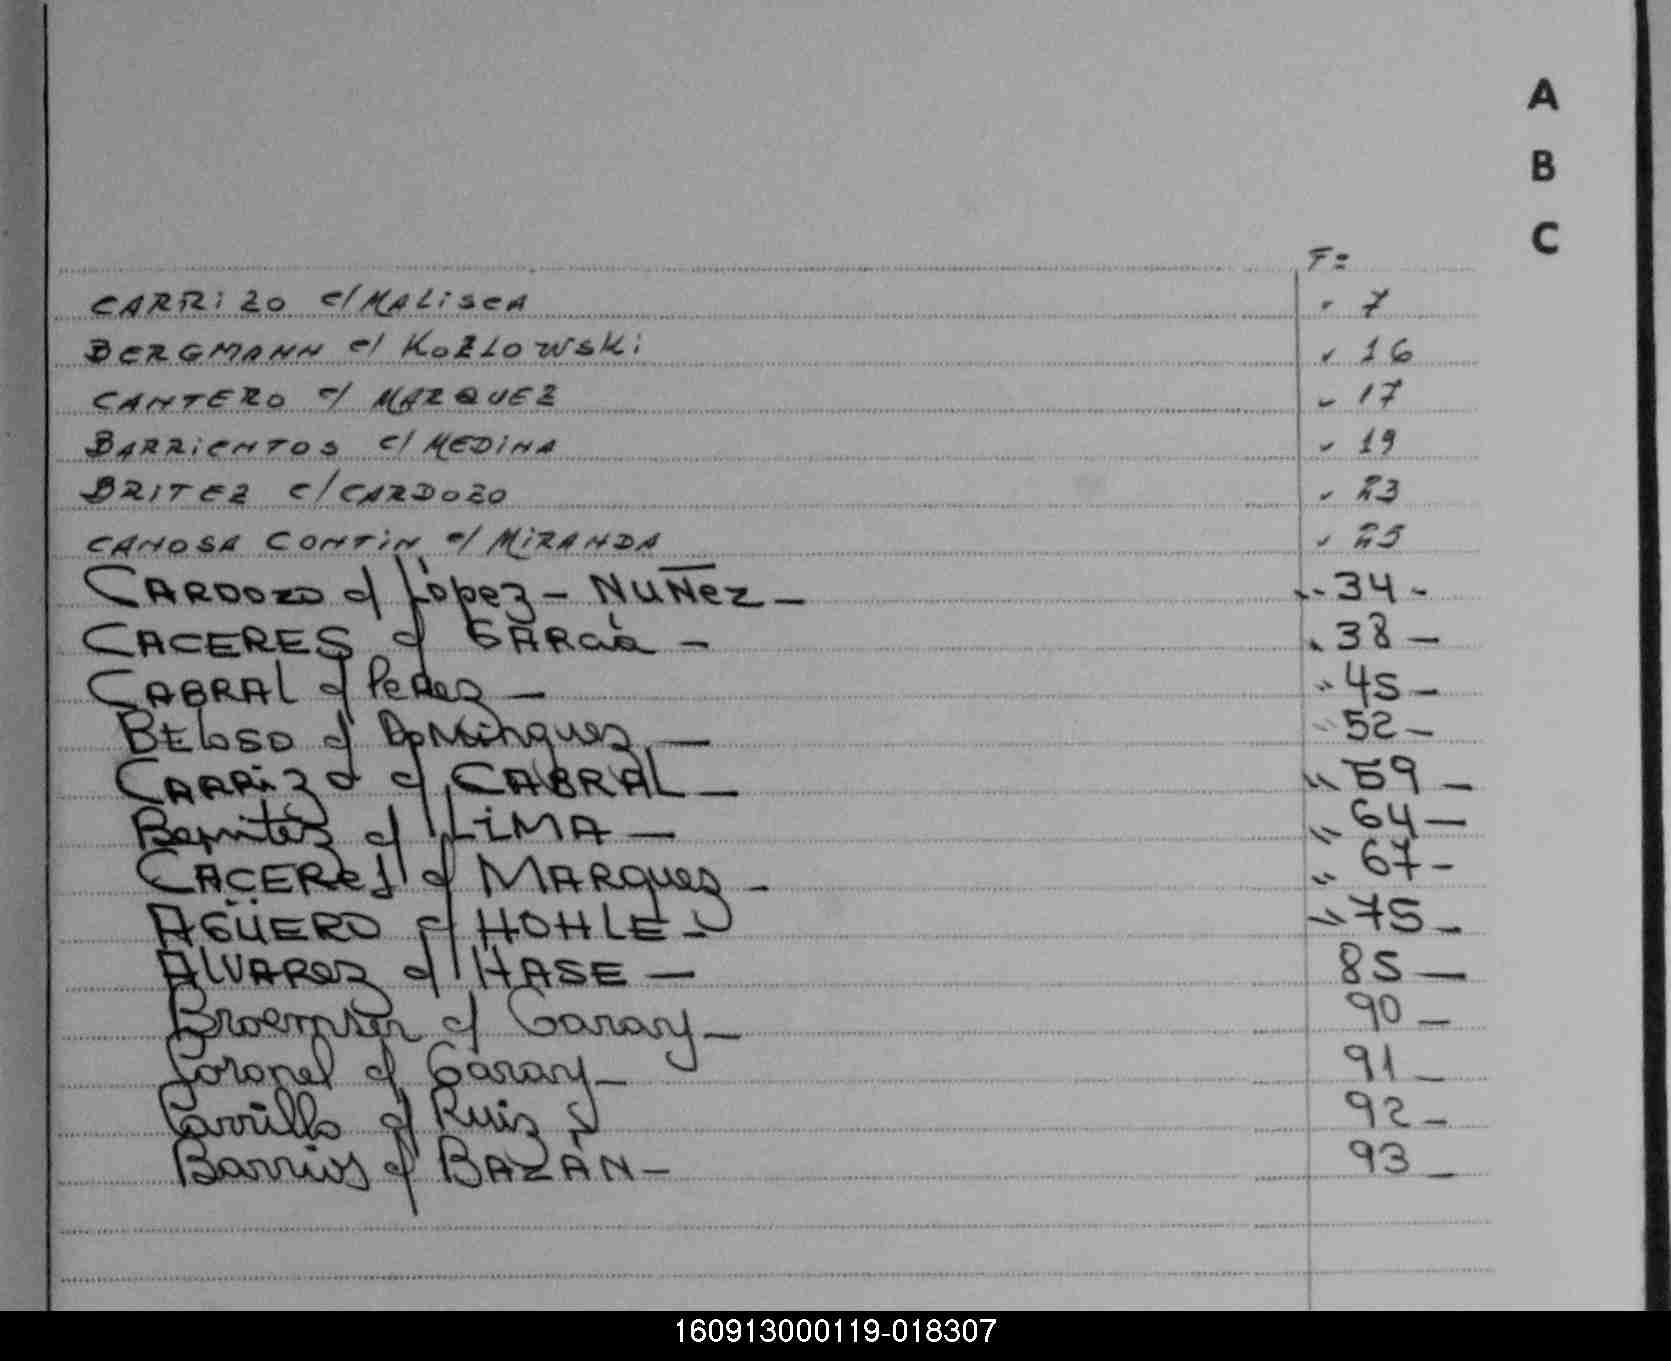 A
B
C
F=
CARRIZO c/ MALISCA 7
BERGMANN c/ KOZLOWSKI 16
CANTERO c/ MARQUEZ 17
BARRIENTOS c/ MEDINA 19
BRITEZ c/ CARDOZO 23
CANOSA CONTIN c/ MIRANDA 25
CARDOZO c/ López - NUÑEZ - 34 -
CACERES c/ GARCIA - 38 -
CABRAL c/ PeRez - 45 -
BELOSO c/ DOMINGUEZ - 52 -
CARRIZO c/ CABRAL - " 59 -
Benitez c/ LIMA - " 64 -
CACEReS c/ MARQuez - " 67 -
AGÜERO c/ HOHLE - " 75 -
ALVAREZ c/ HASE - 85 -
c/ Garay - 90 -
Coronel c/ Garay - 91 -
Carrillo c/ Ruiz 92 -
Barrios c/ BAZÁN - 93 -
160913000119-018307